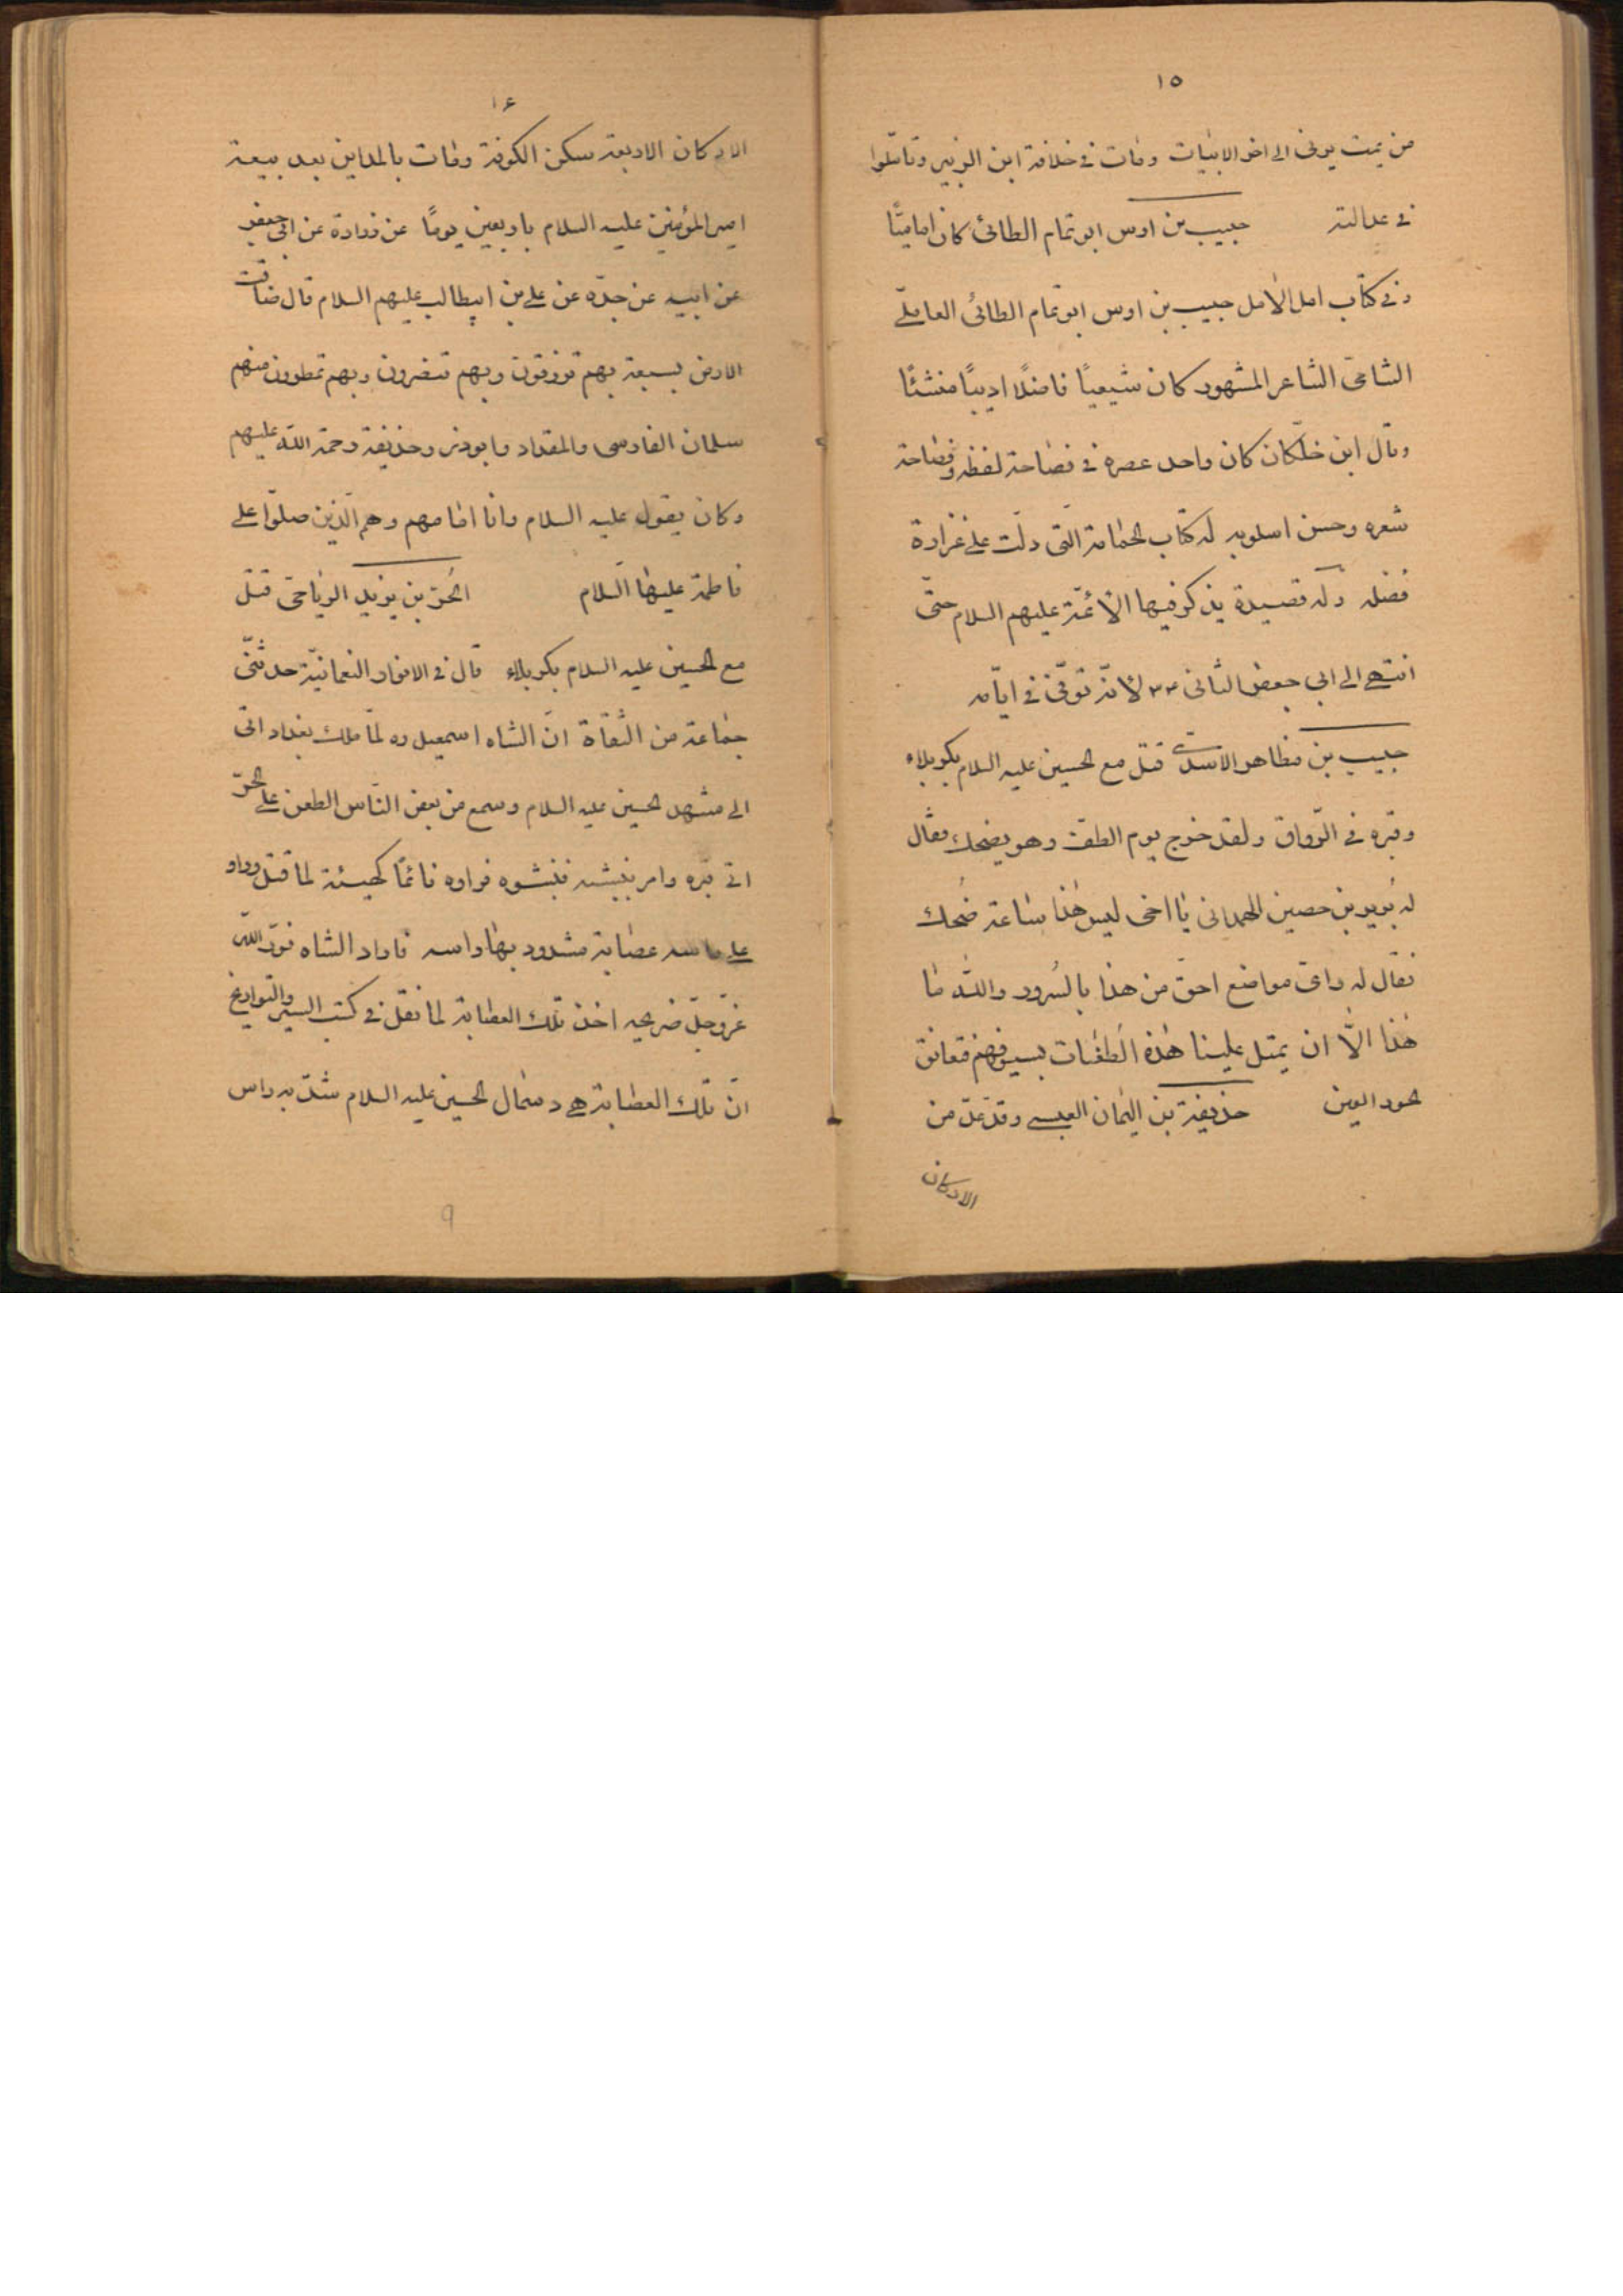 ١٥
من يمت يرنى الى اخر الابيات ومات فى خلافة ابن الزبير وتأملوا
فى عدالته حبيب بن اوس ابو تمام الطائى كان اماميًا
وفى كتاب امل الامل حبيب بن اوس ابو تمام الطائى العاملى
الشامى الشاعر المشهور كان شيعيًا فاضلًا اديبًا منشئًا
وقال ابن خلّكان كان واحد عصره فى فصاحة لفظه وفصاحة
شعره وحسن اسلوبه له كتاب الحماسة التى دلّت على غزارة
فضله وله قصيدة يذكر فيها الأئمّة عليهم السلام حتّى
انتهى الى ابى جعفر الثانى لأنّه توفّى فى ايّامه
حبيب بن مظاهر الاسدى قتل مع الحسين عليه السلام بكربلاء
وقبره فى الرّواق ولقد خرج يوم الطفّ وهو يضحك فقال
له بُرير بن حصين الهمدانى يا اخى ليس هذا ساعة ضحك
فقال له واىّ مواضع احقّ من هذا بالسُرور والله ما
هذا الّا ان يميل علينا هذه الطغات بسيوفهم فتعانق
حور العين حذيفة بن اليمان العبسى وقد عدّ من
الاركان
١۶
الاركان الاربعة سكن الكوفة ومات بالمداين بعد بيعة
امير المؤمنين عليه السلام باربعين يومًا عن زرارة عن ابى جعفر
عن ابيه عن جدّه عن على بن ابيطالب عليهم السلام قال ضاقت
الارض بسبعة بهم ترزقون وبهم تنصرون وبهم تمطرون منهم
سلمان الفارسى والمقداد وابوذر وحذيفة رحمة الله عليهم
وكان يقول عليه السلام وانا امامهم وهم الّذين صلّوا على
فاطمة عليها السّلام الحُرّ بن يزيد الرياحى قتل
مع الحسين عليه السلام بكربلاء قال فى الانوار النعمانيّة حدثنى
جماعة من الثّقاة انّ الشاه اسمعيل ره لمّا ملك بغداد اتى
الى مشهد الحسين عليه السلام وسمع من بعض النّاس الطعن على الحرّ
اتى قبره وامر بنبشه فنبشوه فراوه نائمًا كهيئة لما قتل وراو
على راسه عصابة مشدود بها راسه فاراد الشاه نوّر الله
عزّ وجلّ ضريحه اخذ تلك العصابة لما نقل فى كتب السير والتواريخ
انّ تلك العصابة هى دسمال الحسين عليه السلام شدّ به راس
9